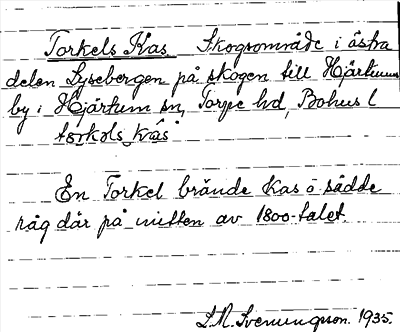 Torkels Kas Skogsområde i östra
delen Lysebergen på skogen till Hjärtums
by i Hjärtum sn, Torpe hd, Bohus l
En Torkel brände Kas o sådde
råg där på mitten av 1800-talet.
S.M. Svenungson. 1935.